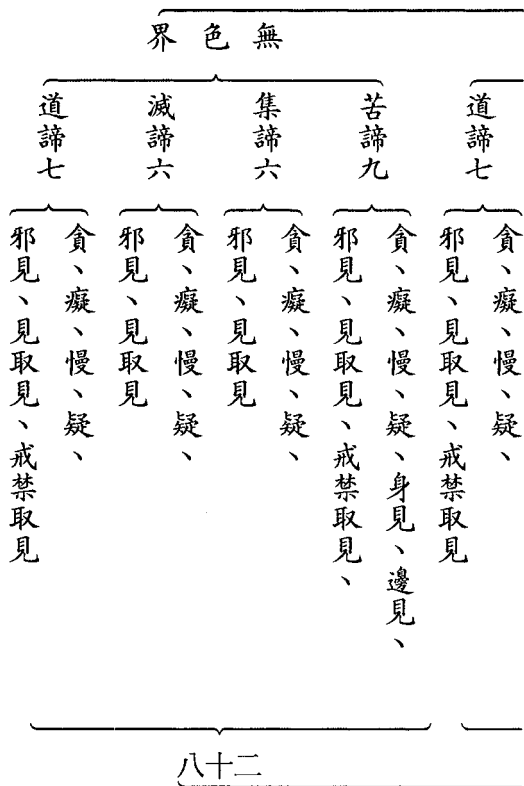 無色界
道諦七
貪、癡、慢、疑、
邪見、見取見、戒禁取見
苦諦九
貪、癡、慢、疑、身見、邊見、
邪見、見取見、戒禁取見、
集諦六
貪、癡、慢、疑、
邪見、見取見
滅諦六
貪、癡、慢、疑、
邪見、見取見
道諦七
貪、癡、慢、疑、
邪見、見取見、戒禁取見
二十八